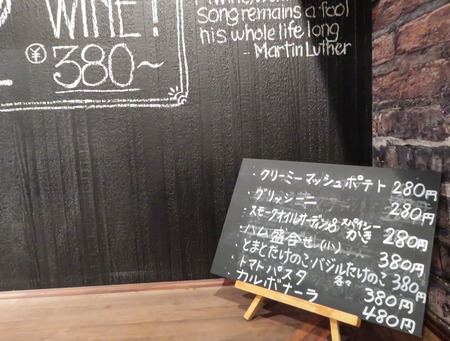 WINE!
¥380~
song remains a fool
his whole life long
- Martin Luther
・クリーミーマッシュポテト 280円
・グリッシーニ 280円
・スモークオイルサーディン&スパイシーかき 280円
・ハム盛合せ(小) 380円
・とまとたけのこ・バジルたけのこ 各々 380円
・トマトパスタ 380円
カルボナーラ 480円